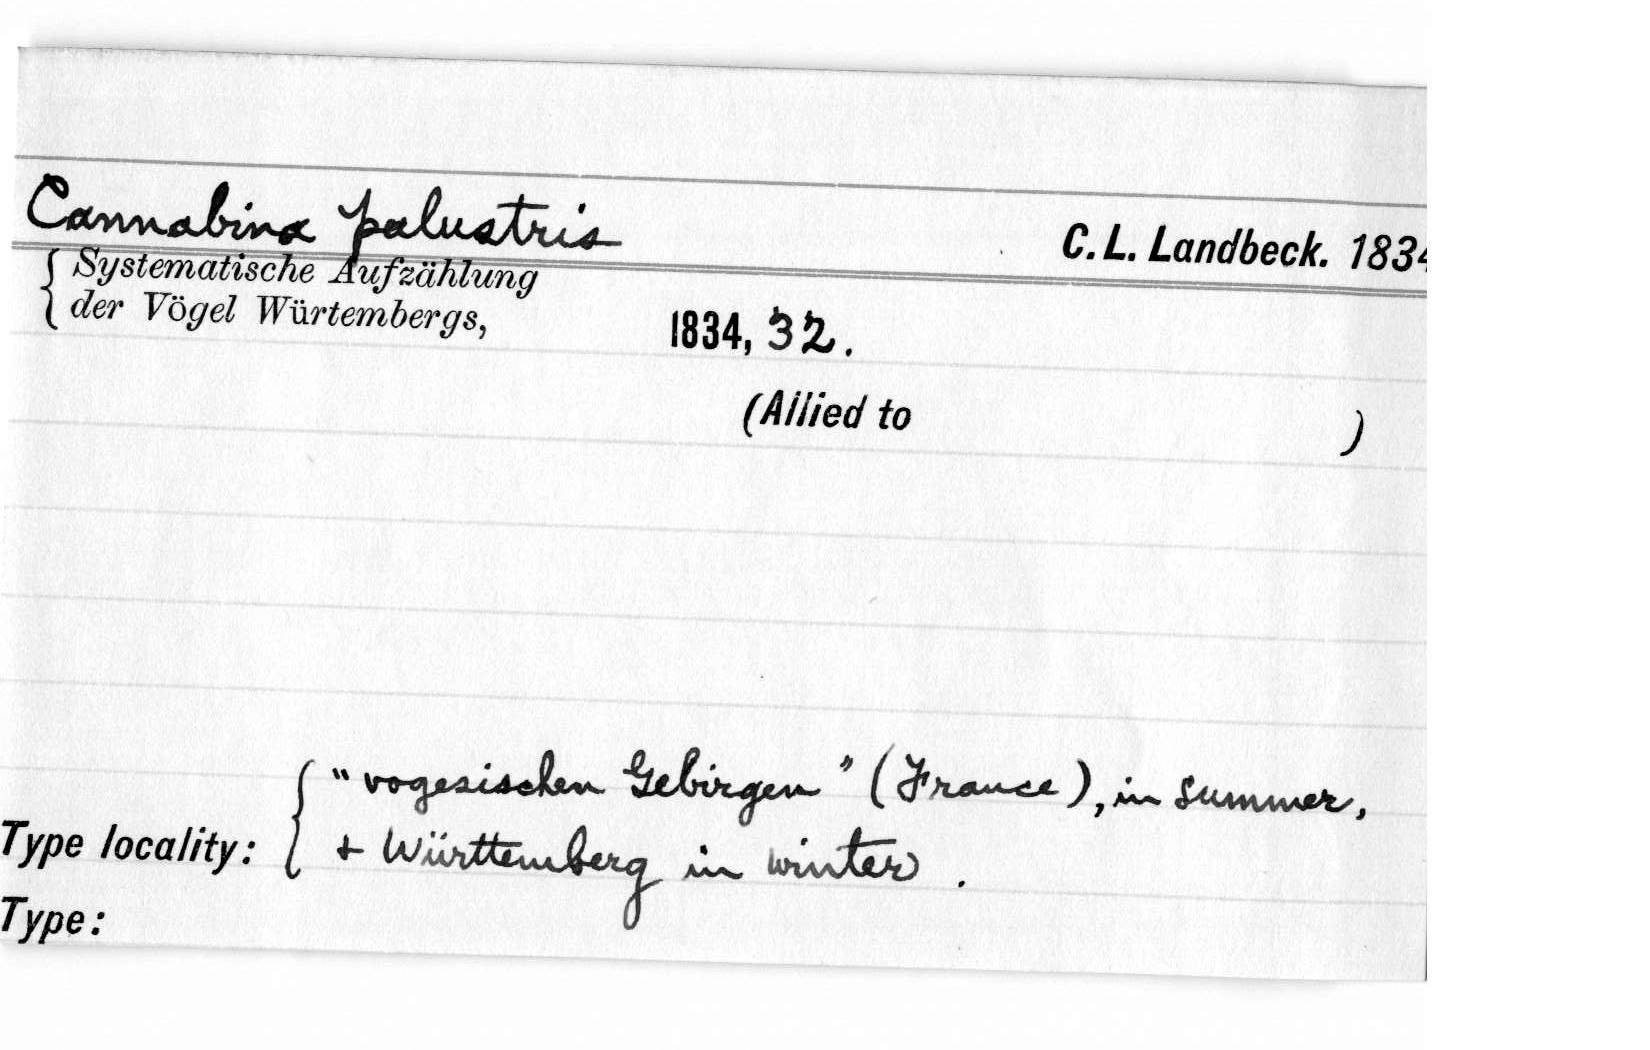 Cannabina palustris C. L. Landbeck. 1834
Systematische Aufzählung
der Vögel Würtembergs, 1834, 32.
(Allied to )
"vogesischen Gebirgen" (France), in summer,
Type locality: + Württemberg in winter.
Type: